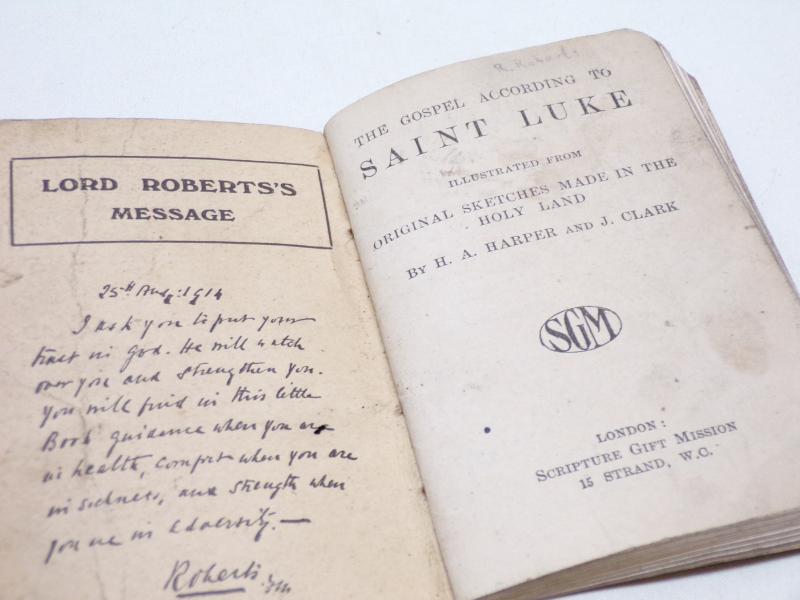 LORD ROBERTS'S
MESSAGE
25th Aug. 1914
I ask you to put your
trust in God. He will watch
over you and strengthen you.
You will find in this little
Book guidance when you are
in health, comfort when you are
in sickness, and strength when
you are in adversity.—
Roberts
R. Roberts
THE GOSPEL ACCORDING TO
SAINT LUKE
ILLUSTRATED FROM
ORIGINAL SKETCHES MADE IN THE
HOLY LAND
BY H. A. HARPER AND J. CLARK
SGM
LONDON:
SCRIPTURE GIFT MISSION
15 STRAND, W.C.